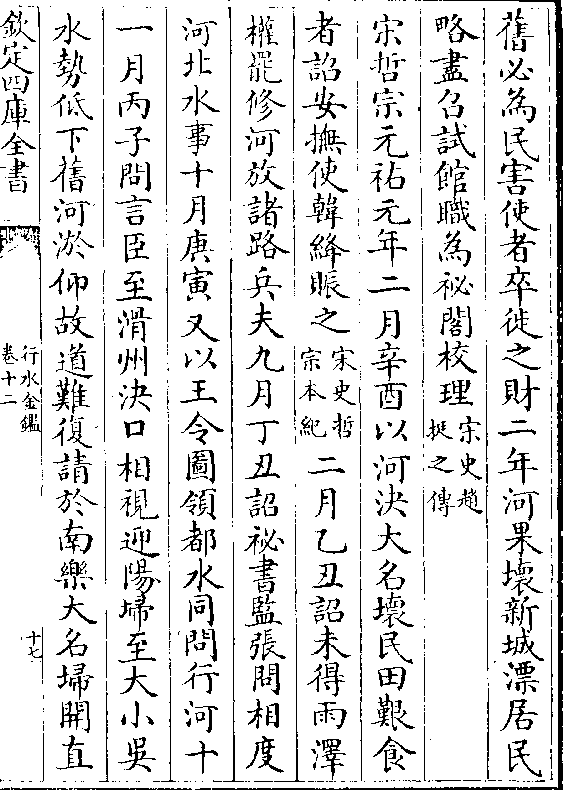 舊必為民害使者卒徙之財二年河果壞新城漂居民
略盡召試館職為祕閣校理宋史趙
挺之傳
宋哲宗元祐元年二月辛酉以河決大名壞民田艱食
者詔安撫使韓絳賑之宋史哲
宗本紀二月乙丑詔未得雨澤
權罷修河放諸路兵夫九月丁丑詔祕書監張問相度
河北水事十月庚寅又以王令圖領都水同問行河十
一月丙子問言臣至滑州決口相視迎陽埽至大小吳
水勢低下舊河淤仰故道難復請於南樂大名埽開直
欽定四庫全書
行水金鑑
卷十二
十七